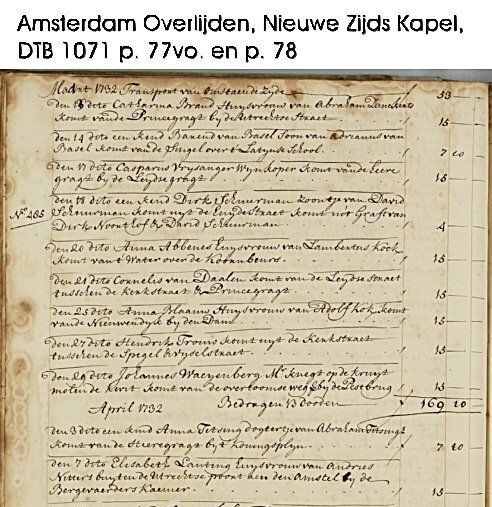 Amsterdam Overlijden, Nieuwe Zijds Kapel,
DTB 1071 p. 77vo. en p. 78
Maart 1732 Transport van omstaende zyde 53
den 13 dito Catharina Brand Huysvrouw van Abraham
komt vande Princegragt by de Utrechtse straet 15
den 14 dito een kind Barend van Basel Soon van Adrianus van
Basel komt van de Singel over t Latynse School 7 10
den 17 dito Casparus Vrysanger Wynkoper komt vande Heere
gragt by de Leydse gragt 15
den 18 dito een kind Dirk Schuurman zoontje van David
Schuurman komt uyt de straet komt int Graft van
No. 485
Dirk Noorthof & David Schuurman 4
den 20 dito Anna Abbenes Huysvrouw van Lambertus Kock
komt van t Water over de Koornbeurs 15
den 21 dito Cornelis van Daalen komt van de Leydse straet
tusschen de Kerkstraet & Princegragt 15
den 25 dito Anna Blaauw Huysvrouw van Adolf Kok komt
vande Nieuwendyk by den Dam 15
den 27 dito Hendrik Trouw komt uyt de Kerkstraet
tusschen de Spegel & Vyselstraet 15
den 28 dito Johannes Waeyenberg Mr knegt op de kruyt
molen de komt van de overtoomse weg by de Pestbrug 15
April 1732 Bedragen 13 dooden 169 10
den 3 dito een kind Anna Titsing dogtertje van Abraham Titsingh
komt van de Heeregragt byt Koningsplyn 7 10
den 7 dito Elisabeth Lanting Huysvrouw van Andries
Nitters buyten de Utrechtse poort aen den Amstel by de
Bergevaerders Kaemer 15